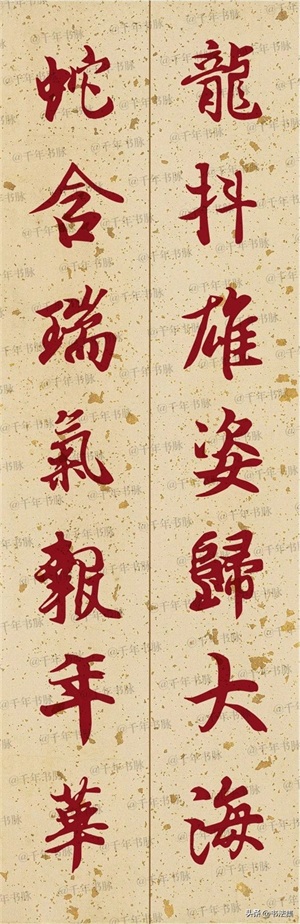 龍抖雄姿歸大海
蛇含瑞氣報年華
@千年书脉
头条@书法屋